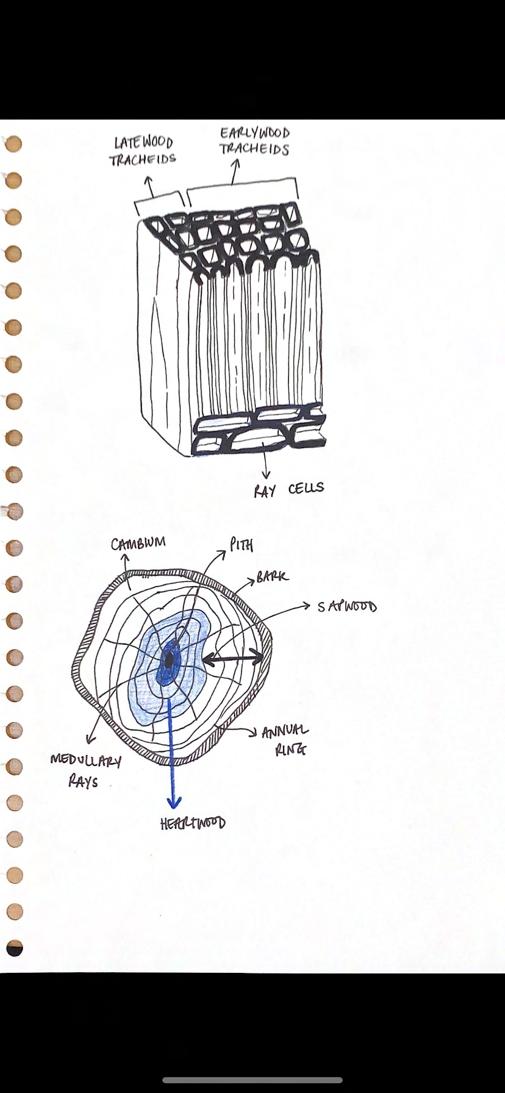 LATEWOOD
TRACHEIDS
EARLYWOOD
TRACHEIDS
RAY CELLS
CAMBIUM
PITH
BARK
SAPWOOD
ANNUAL
RING
MEDULLARY
RAYS
HEARTWOOD